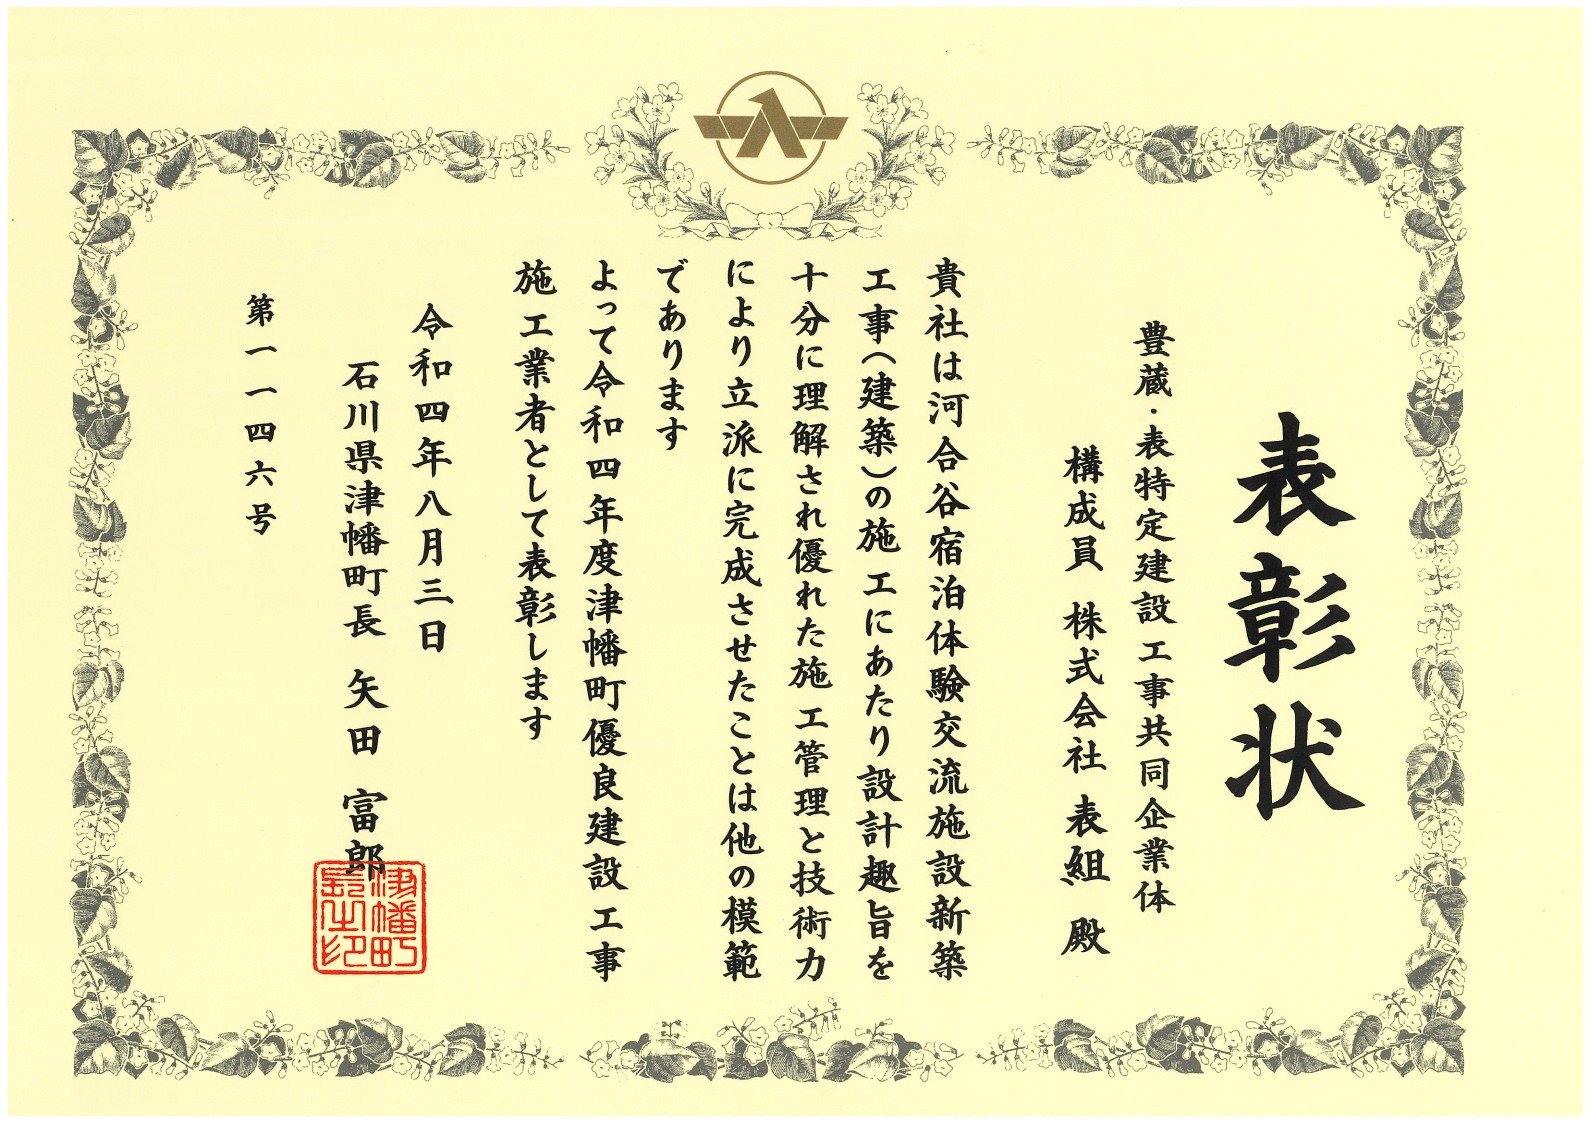 表彰状
豊蔵・表特定建設工事共同企業体
構成員 株式会社 表組 殿
貴社は河合谷宿泊体験交流施設新築
工事(建築)の施工にあたり設計趣旨を
十分に理解され優れた施工管理と技術力
により立派に完成させたことは他の模範
であります
よって令和四年度津幡町優良建設工事
施工業者として表彰します
令和四年八月三日
石川県津幡町長 矢田 富郎
津幡町
長之印
第一一四六号